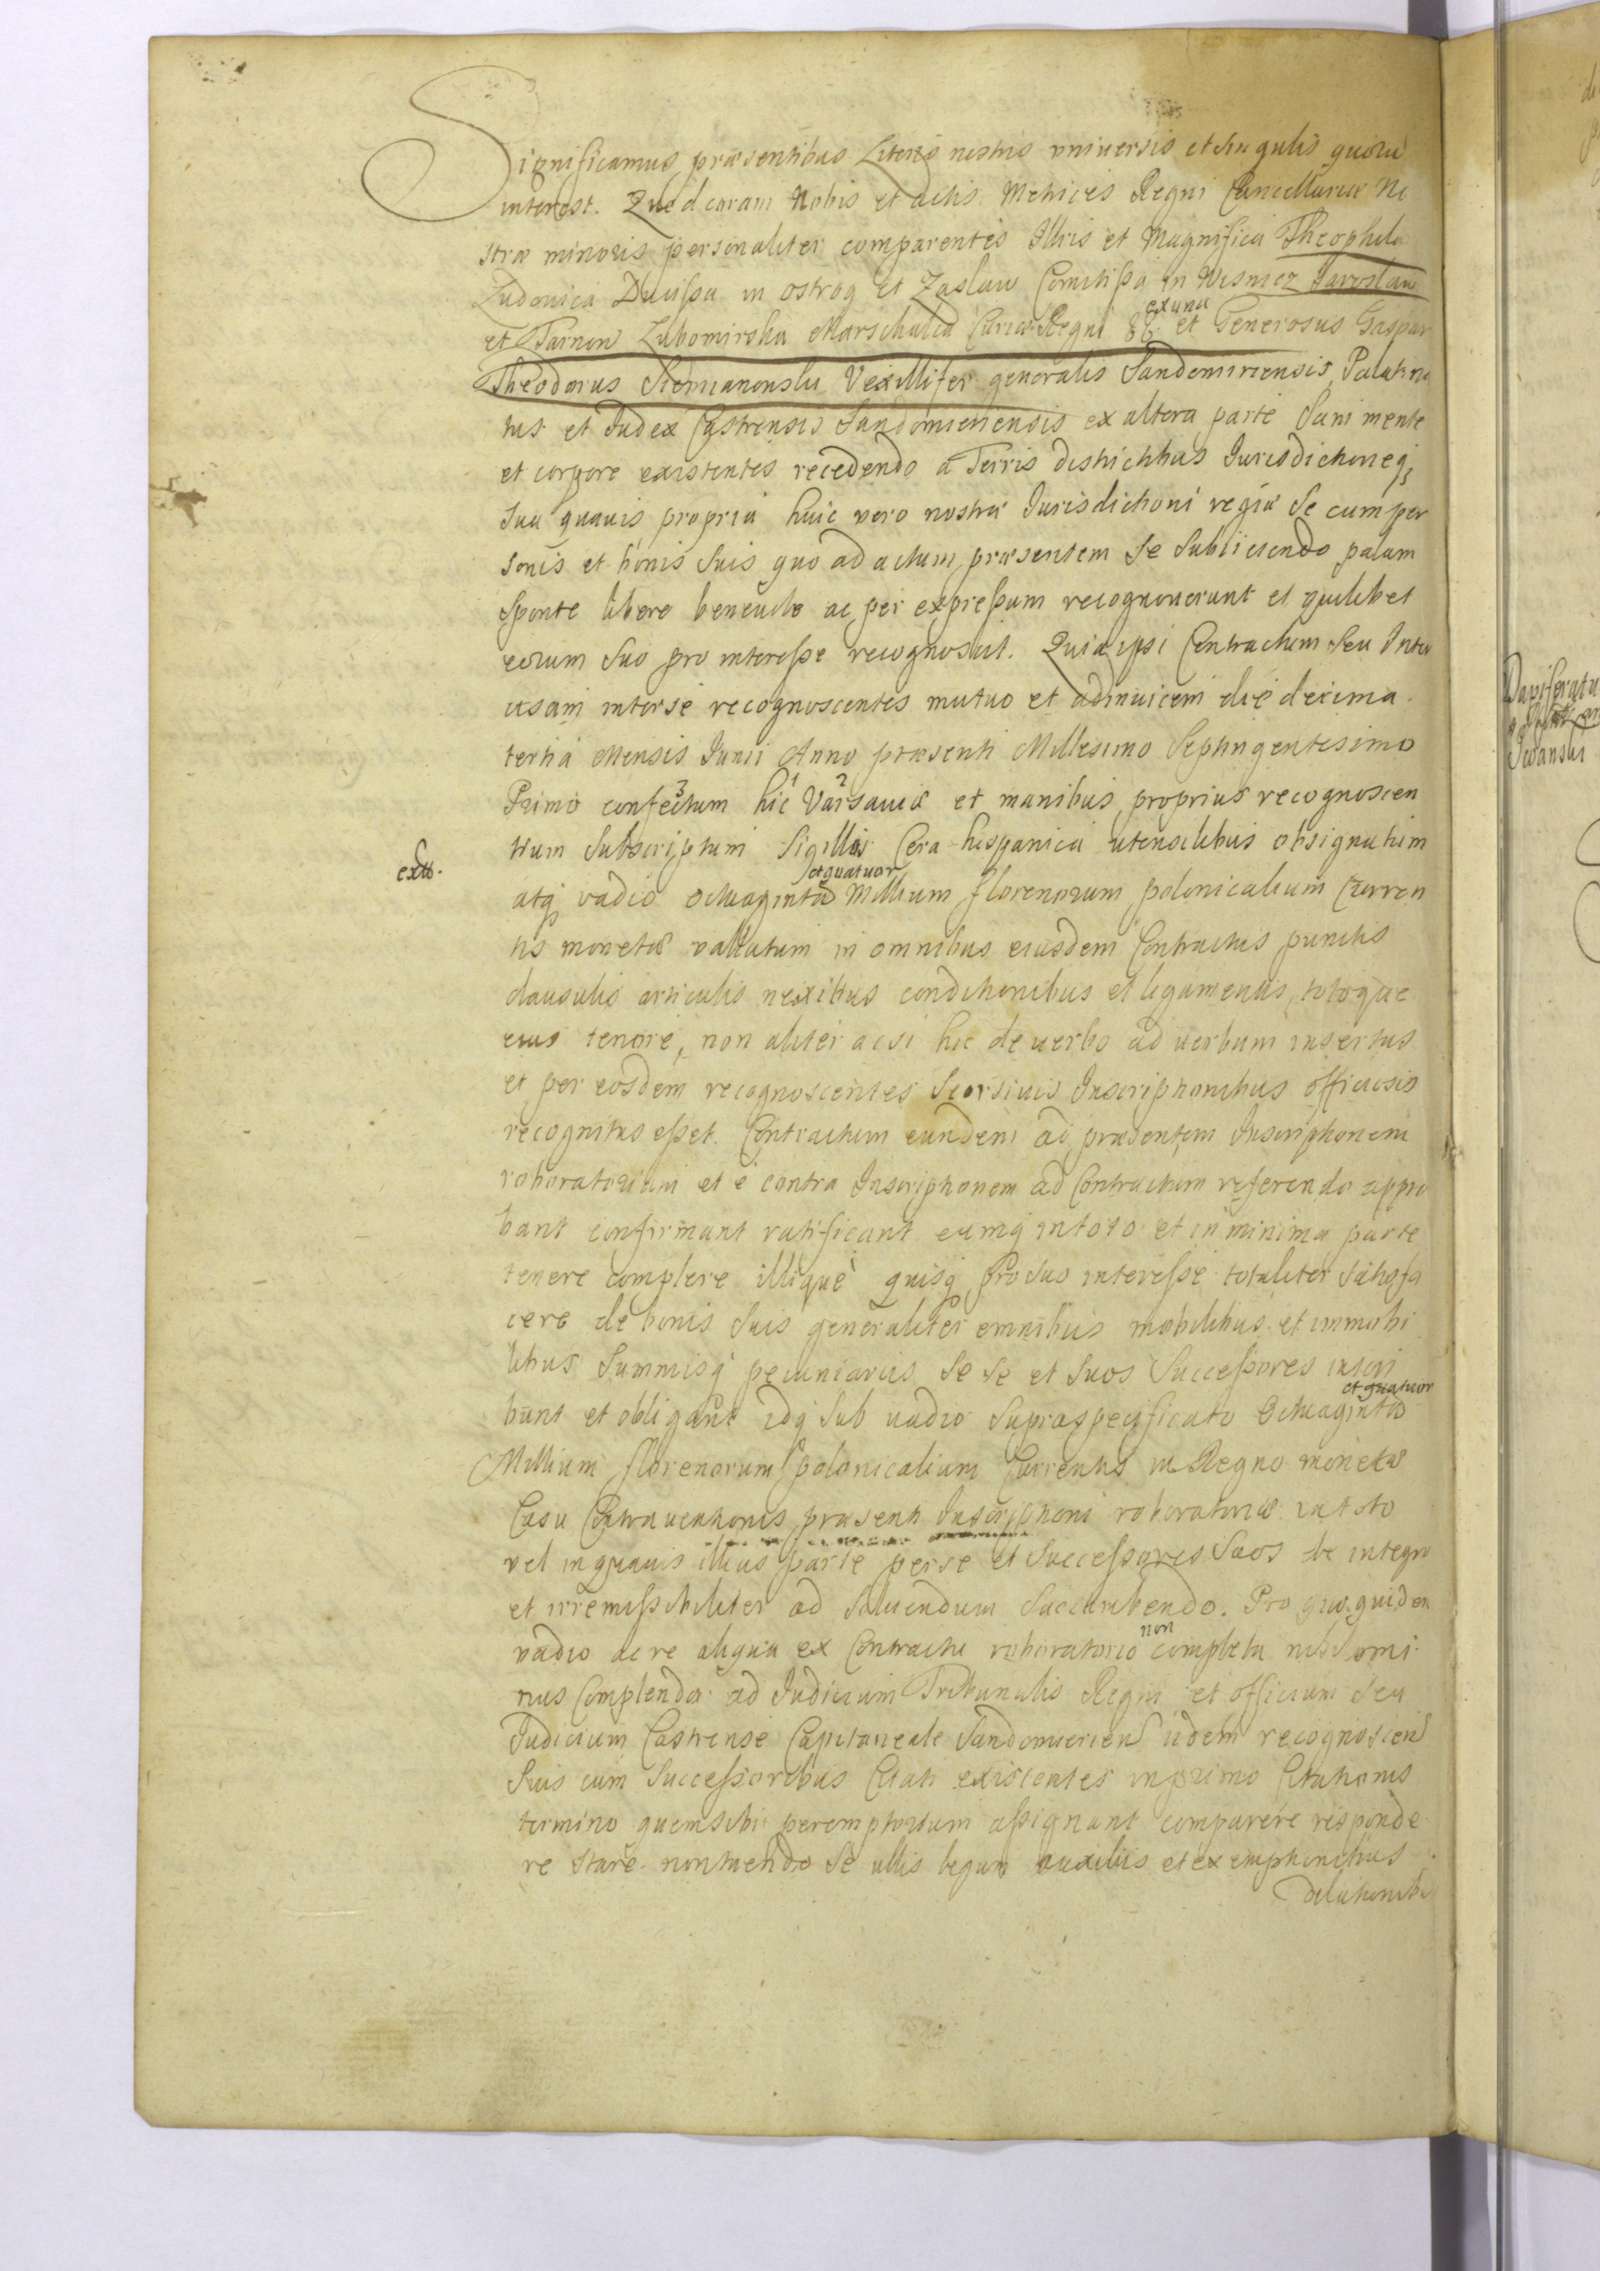 Significamus præsentibus Literis nostris vniuersis et singulis quorū
interest. Quod coram Nobis et actis Metrices Regni Cancellariæ No
stræ minoris personaliter comparentes Illris et Magnifica Theophila
Ludouica Ducissa in ostrog et Zaslaw Comitissa in Wisnicz Jaroslaw
ex una
et Tarnow Lubomirska Marschalca Curiæ Regni et Generosus Gaspar
Theodorus Vexillifer generalis Sandomiriensis Palatina
tus et Judex Castrensis Sandomiriensis ex altera parte Sani mente
et corpore existentes recedendo a Terris districtibus Jurisdictioneq;
sua quauis propria huic vero nostræ Jurisdictioni regiæ se cum per
sonis et bonis suis quo ad actum præsentem se subiiciendo palam
sponte libere beneuole ac per expressum recognouerunt et quilibet
eorum suo pro interesse recognoscit. Quia ipsi Contractum seu Inter
cisam inter se recognoscentes mutuo et adinuicem die decima
tertia Mensis Junii Anno præsenti Millesimo Septingentesimo
3 1 2
Primo confectum hic Varsauiæ et manibus propriis recognoscen
tium subscriptum Sigillis Cera hispanica utensilibus obsignatum
et quatuor
atq; vadio octuaginta Millium florenorum polonicalium Curren
tis monetæ vallatum in omnibus eiusdem Contractus punctis
clausulis articulis nexibus conditionibus et ligamentis, totoque
eius tenore, non aliter acsi hic de uerbo ad uerbum insertus
et per eosdem recognoscentes Seorsiuis Inscriptionibus officiosis
recognitus esset. Contractum eundem ad præsentem Inscriptionem
roboratoriam et e contra Inscriptionem ad Contractum referendo appro
bant confirmant ratificant eumq; in toto et in minima parte
tenere complere illique quisq; pro suo interesse totaliter satisfa
cere de bonis suis generaliter omnibus mobilibus et immobi
libus summisq; pecuniariis se se et suos Successores inscri
et quatuor
bunt et obligant idq; sub uadio supraspecificato Octuaginta
Millium florenorum polonicalium Currentis in Regno monetæ
Casu Contrauentionis præsenti Inscriptioni roboratoriæ in toto
vel in quauis illius parte per se et Successores suos de integro
et irremissibiliter ad soluendum succumbendo. Pro quo quidem
non
vadio ac re aliqua ex Contractu roboratorio completa nihilomi
nus complenda ad Judicium Tribunalis Regni et officium seu
Judicium Castrense Capitaneale Sandomirien iidem recognoscen
suis cum Successoribus Citati existentes in primo Citationis
termino quem sibi peremptorium assignant comparere responde
re stare non tuendo se ullis legum auxiliis et exemptionibus
dilationib
Dapiferatu